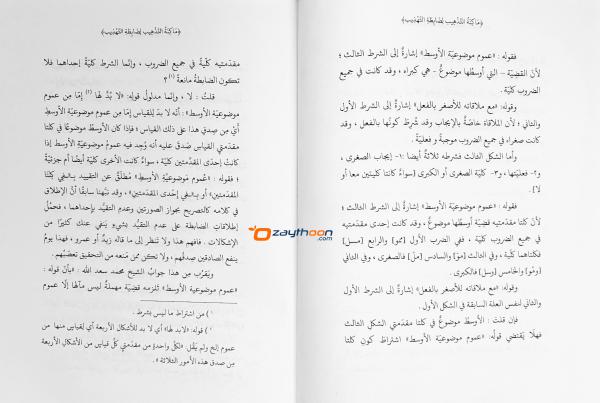 ﴿مَاكِنَةُ التَّذْهِيبِ لِضَابِطَةِ التَّهْذِيبِ﴾
فقوله : «عموم موضوعيّة الأوسط» إشارةٌ إلى الشرط الثالث ؛
لأنّ القضيّة – التي أوسطُها موضوعٌ - هي كبراه ، وقد كانت في جميع
الضروب كليّة .
وقوله: «مع ملاقاته للأصغر بالفعل» إشارة إلى الشرط الأول
والثاني ؛ لأن الملاقاة خاصّةٌ بالإيجاب وقد شُرِطَ كونُها بالفعل ، وقد
كانت صغراه في جميع الضروب موجبةً و فعليّةً .
وأما الشكل الثالث فشرطه ثلاثةٌ أيضا :١- إيجاب الصغرى ،
و٢- فعليتها ، و٣- كليّة الصغرى أو الكبرى (سواءٌ كانتا كليتين معا أو
لا) .
فقوله : «عموم موضوعيّة الأوسط» إشارة إلى الشرط الثالث ؛
لأنّ كلتا مقدمتيه قضيّة أوسطُها موضوعٌ ، وقد كانت إحدى مقدمتيه
في جميع الضروب كليّة ، ففي الضرب الأول [ممو] والرابع [مسل]
فكلتاهما كليّة ، وفي الثالث [ومو] والسادس [مل] فالصغرى ، وفي الثاني
[ومو] والخامس [وسل] فالكبرى .
وقوله: «مع ملاقاته للأصغر بالفعل» إشارة إلى الشرط الأول
والثاني لنفس العلة السابقة في الشكل الأول .
فإن قلتَ : الأوسط موضوعٌ في كلتا مقدمتي الشكل الثالث
فهلّا يقتضي قولُه: «عموم موضوعيّة الأوسط» اشتراطَ كون كلتا
﴿مَاكِنَةُ التَّذْهِيبِ لِضَابِطَةِ التَّهْذِيبِ﴾
مقدّمتيه كليةً في جميع الضروب ، وإنّما الشرط كليّةُ إحداهما فلا
تكون الضابطةُ مانعةً (١) ؟
قلتُ : لا ، وإنما مدلولُ قولِه: «لَا بُدَّ لهَا (٢) إمّا مِن عموم
موضوعيّة الأوسط» : أنّه لا بدّ للقياس إمّا مِن عموم موضوعيّة الأوسط
أيْ مِن صِدق هذا على ذلك القياس ؛ فإذا كان الأوسطُ موضوعًا في كلتا
مقدمتي القياس صَدَقَ عليه أنه وُجد فيه عمومُ موضوعيّة الأوسط إذا
كانتْ إحدى المقدّمتين كليّة ، سواءٌ كانت الأخرى كليّة أيضًا أم جزئيّةً
؛ فقوله : «عُموم مَوضوعيّة الأوسَط» مُطلَقٌ عن التقييد بـ«في كِلتا
المقدّمتين» أو بـ«في إحدى المقدمتين» ، وقد نبّهنا سابقًا أنّ الإطلاق
في كلامه كالتصريح بجواز الصورتين وعدم التقيد بإحداهما ، فحملُ
إطلاقات الضابطة على عدم التقيُّد بشيء ينفي عنك كثيرًا من
الإشكالات . فافهم هذا ولا تنظر إلى ما قاله زيدٌ أو عمرو ؛ فهذا يومُ
ينفع الصادقين صِدقُهم ، ولا تكن ممّن مَنعه من التحقيق تعصّبُهم .
ويَقرُب مِن هذا جوابُ الشيخ محمد سعد الله : «بأن قوله :
«عموم موضوعية الأوسط» نُنزله قضيّة مهملةً ليس مآلها إلا عموم
١ ) من اشتراط ما ليس بشرط .
٢ ) قوله: «لا بد لها» أي لا بد للأشكال الأربعة أي لقياسٍ منها من
عموم إلخ ولم يَقُل: «لكلّ واحدةٍ من مقدمتي كلّ قياسٍ من الأشكال الأربعة
مِن صدق هذه الأمور الثلاثة» .
Ozaythoon
.com